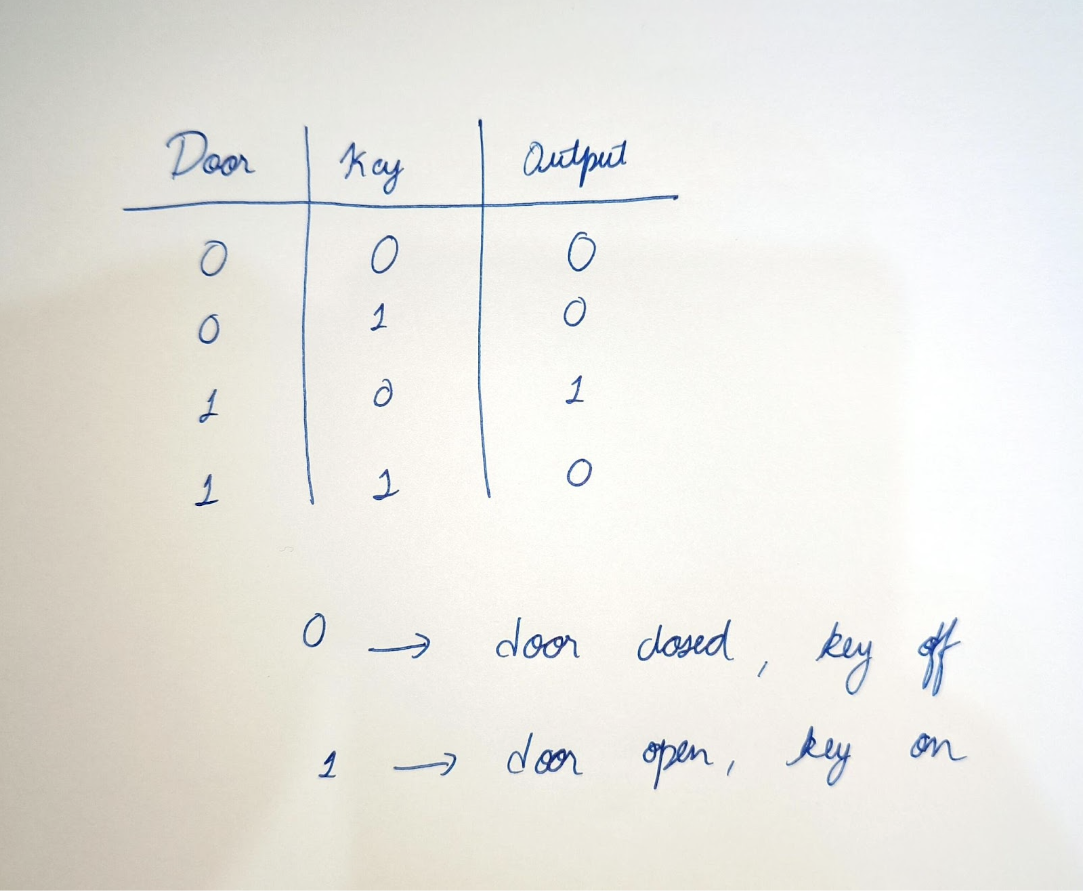 Door Key Output
0 0 0
0 1 0
1 0 1
1 1 0
0 → door closed, key off
1 → door open, key on